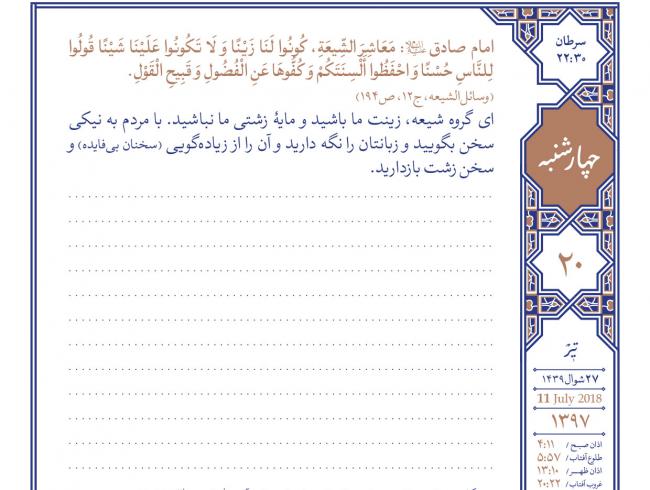 امام صادق علیه‌السلام: مَعَاشِرَ الشِّیعَةِ، کُونُوا لَنَا زَیْنًا وَ لَا تَکُونُوا عَلَیْنَا شَیْنًا قُولُوا
لِلنَّاسِ حُسْنًا وَ احْفَظُوا أَلْسِنَتَکُمْ وَ کُفُّوهَا عَنِ الْفُضُولِ وَ قَبِیحِ الْقَوْلِ.
(وسائل‌الشیعه، ج۱۲، ص۱۹۴)
ای گروه شیعه، زینت ما باشید و مایهٔ زشتی ما نباشید. با مردم به نیکی
سخن بگویید و زبانتان را نگه دارید و آن را از زیاده‌گویی (سخنان بی‌فایده) و
سخن زشت بازدارید.
سرطان
۲۲:۳۰
چهارشنبه
۲۰
تیر
۲۷ شوال ۱۴۳۹
11 July 2018
۱۳۹۷
اذان صبح / ۴:۱۱
طلوع آفتاب / ۵:۵۷
اذان ظهر / ۱۳:۱۰
غروب آفتاب / ۲۰:۲۲